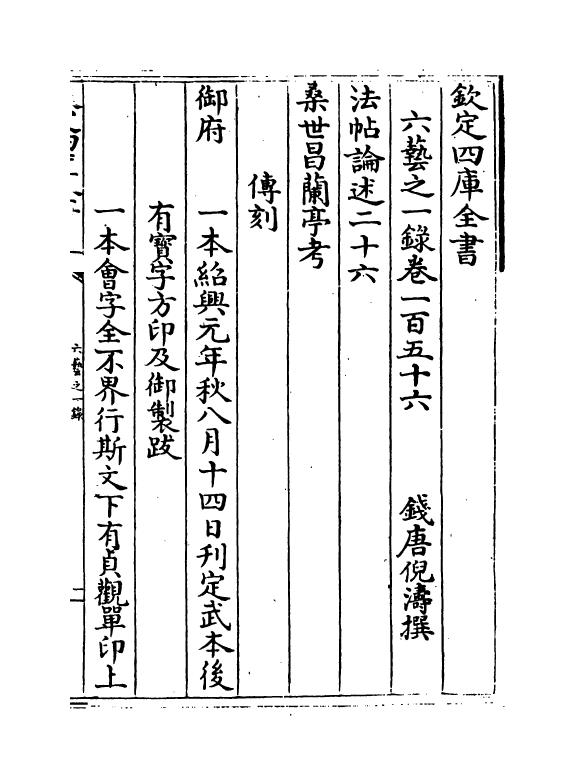 欽定四庫全書
六藝之一錄卷一百五十六　錢唐倪濤撰
法帖論述二十六
桑世昌蘭亭考
傳刻
御府　一本紹興元年秋八月十四日刋定武本後
有寳字方印及御製䟦
一本會字全不界行斯文下有貞觀單印上
六藝之一錄